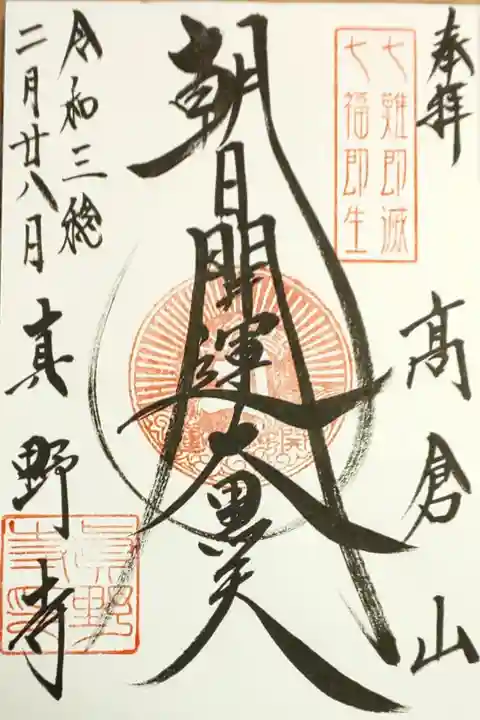 奉拝
高倉山
七難即滅
七福即生
朝日開運大黒天
令和三稔
二月廿八日
真野寺
眞野
寺印